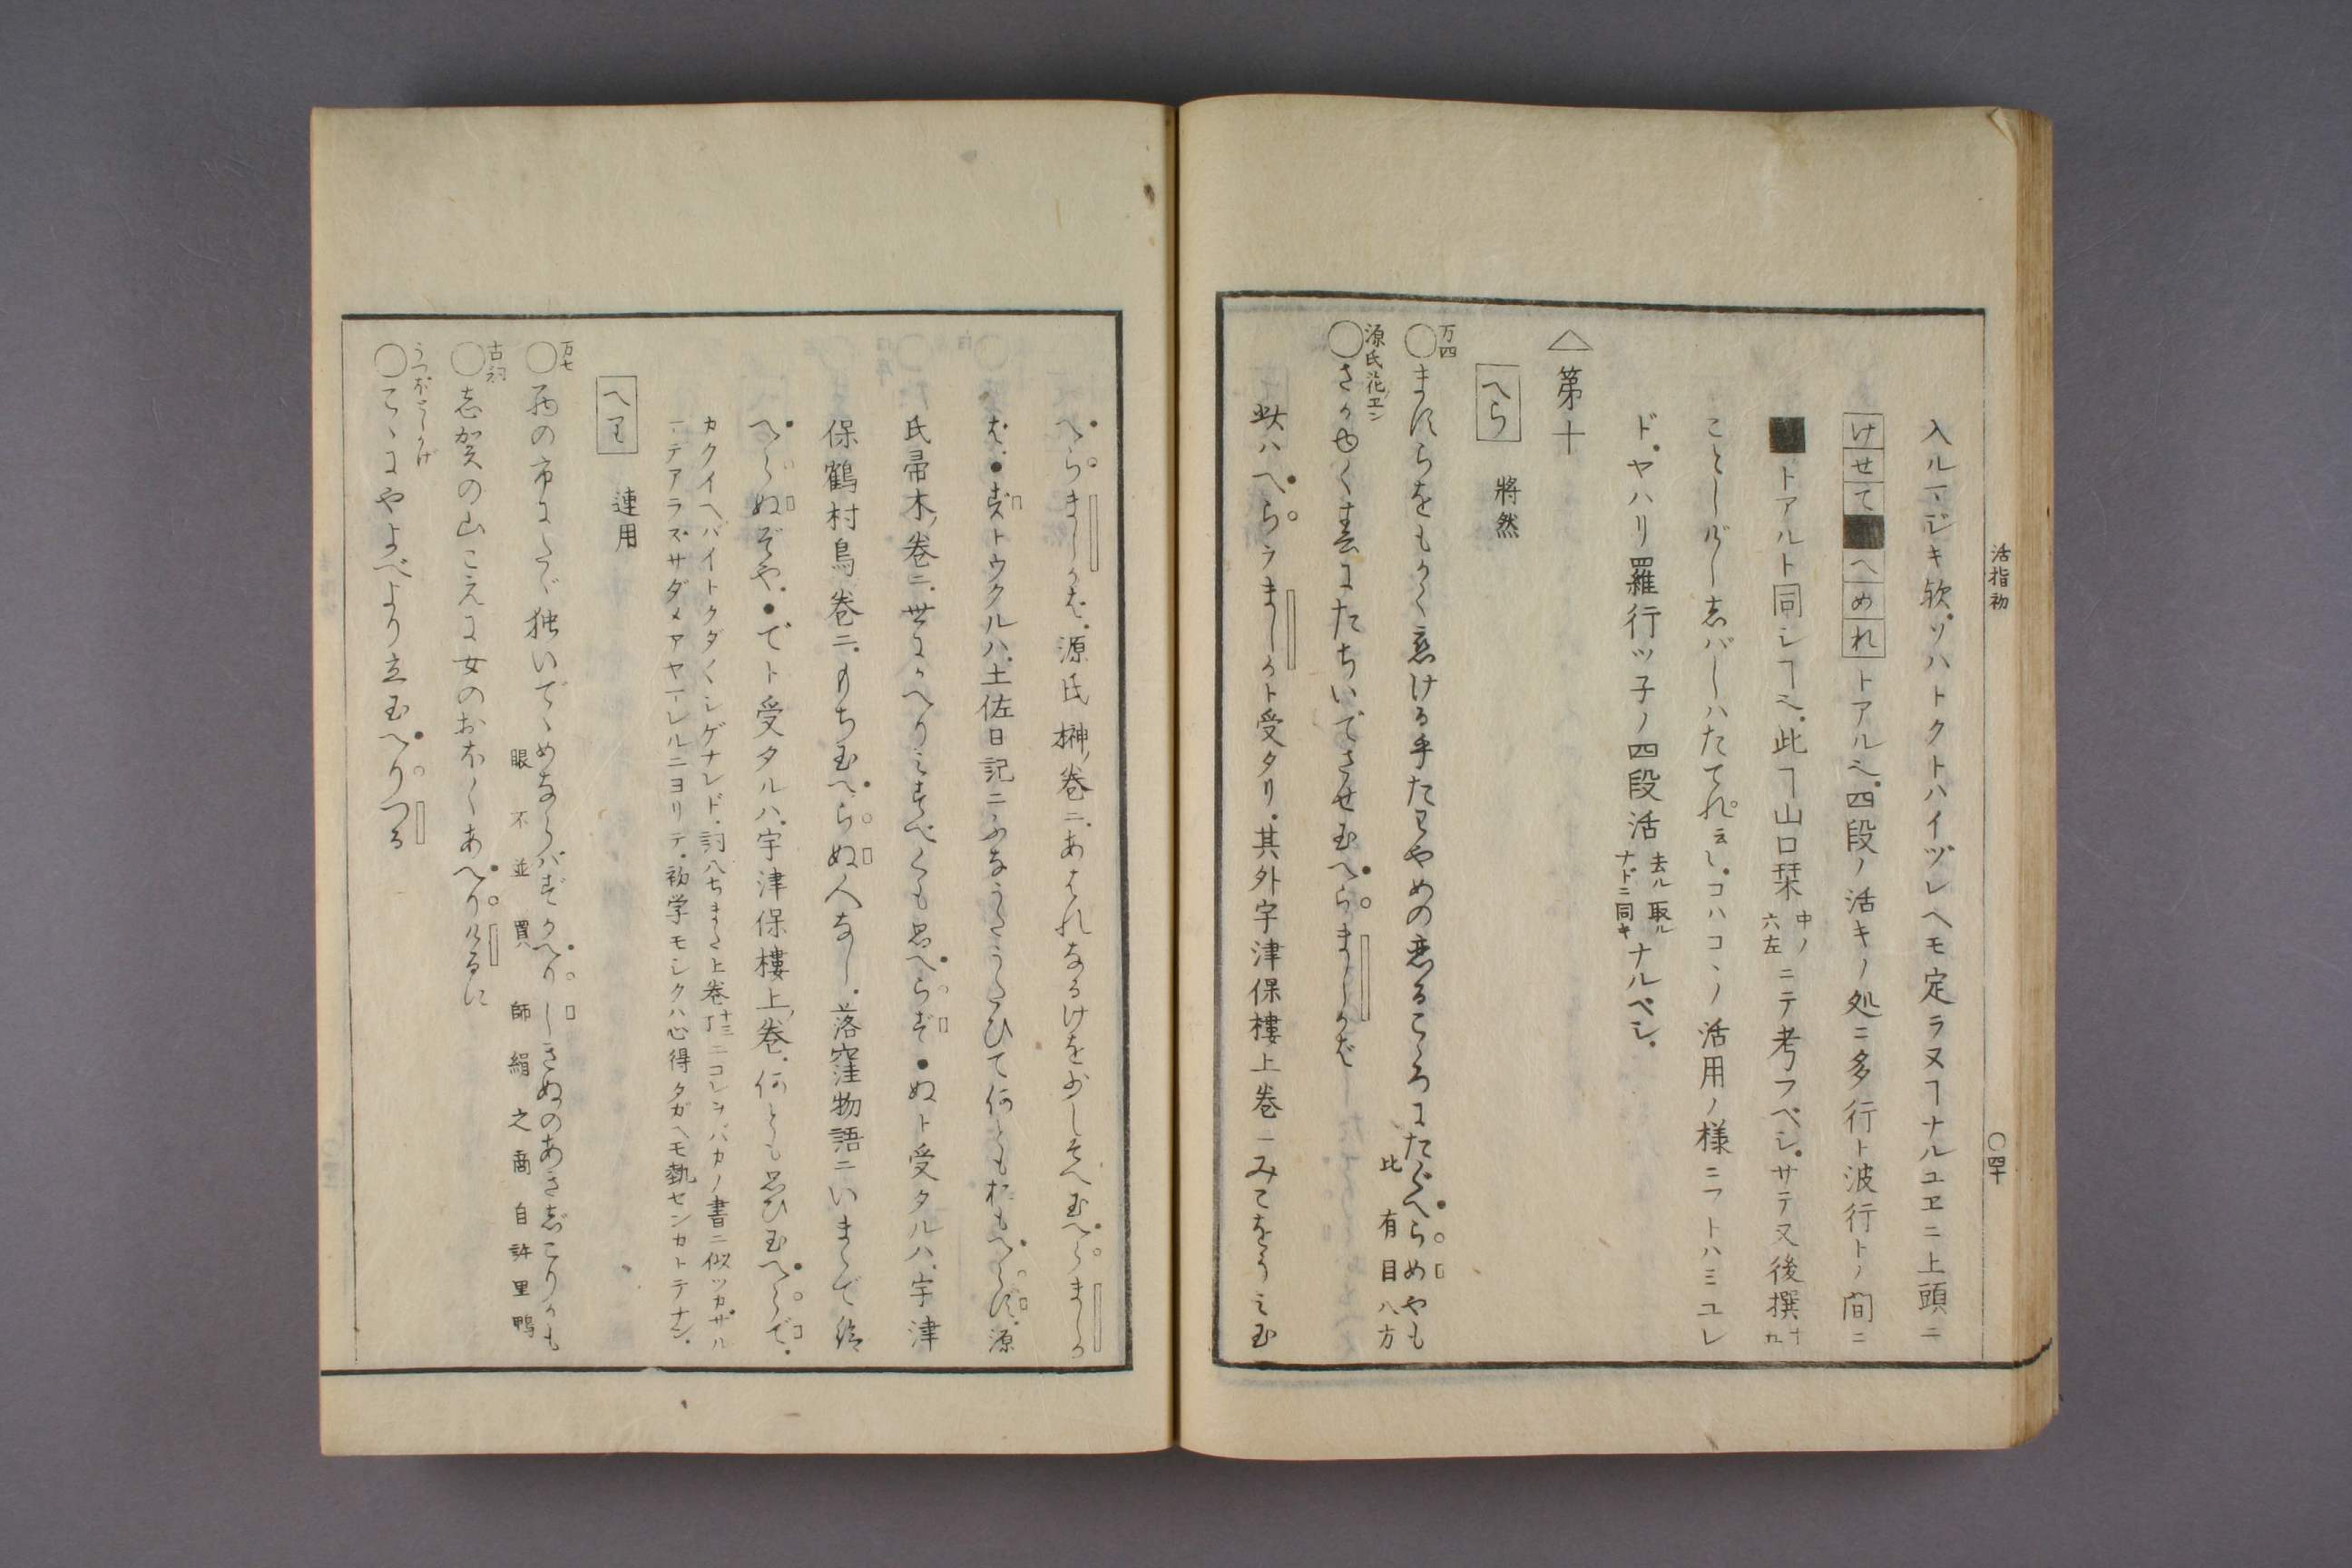 活指初
〇四十
入ルマジキ欤。ソハトクトハイヅレヘモ定ラヌヿナルユヱニ上頭ニ
けせて■へめれトアルヘ。四段ノ活キノ処ニ多行ト波行トノ間ニ
■トアルト同シヿヘ。此ヿ山口栞中ノ六左ニテ考フベシ。サテ又後撰十九
ド。ヤハリ羅行ツ子ノ四段活去ル取ルナドニ同キナルベシ。
△第十
へら 將然
万四
〇まにらをもかく恋ける手たわやめの恋るこゝろにたぐへらめやも
比有目八方
源氏花エン
此ハへらヲましかト受タリ。其外宇津保樓上巻一みこをうミ玉
へらましかば。源氏榊ノ巻ニ。あはれなるけをおしそへ玉へらましか
ば。●ずトウクルハ。土佐日記ニふなうたうたひて何ともおもへらず。源
氏帚木ノ巻ニ。世にかへりミすべくも思へらず●ぬト受タルハ。宇津
保鶴村鳥巻二。もち玉へらぬ人なし。落窪物語ニいまゝで給
へらぬぞや。●でト受タルハ。宇津保樓上ノ巻。何とも思ひ玉へらで。
カクイヘバイトクダ〱シゲナレド。詞八ちまた上巻十三丁ニコレラバカノ書ニ似ツカザル
ーテアラズサダメアヤーレルニヨリテ。初学モシクハ心得タガヘモ熱センカトテナン。
へり 連用
万七
〇西の市にたゞ独いでゝめならバずかへりしきぬのあきじこりかも
眼不並買師絹之商自許里鴨
古詞
〇志賀の山こえに女のおほくあへりけるに
〇こゝにやよべより立玉へりつる